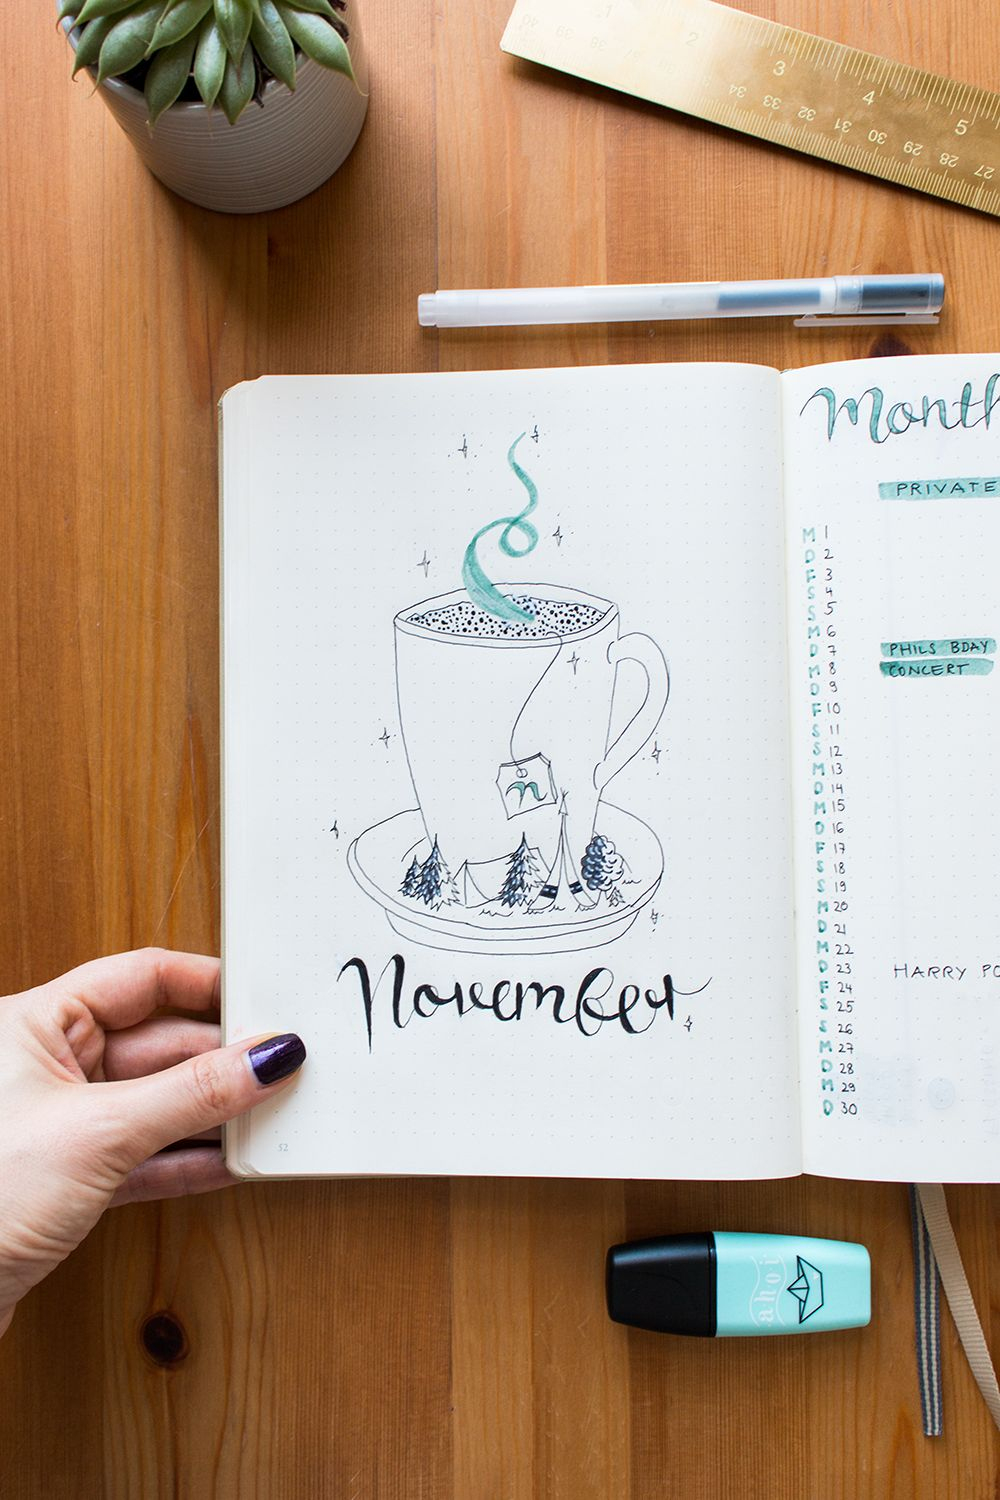 1 2 3 4 5
40 39 38 37 36 35 34 33 32 31 30 29 28 27
Month
PRIVATE
M 1
D 2
F 3
S 4
S 5
M 6
D 7 PHILS BDAY
M 8 CONCERT
D 9
F 10
S 11
S 12
M 13
D 14
M 15
D 16
F 17
S 18
S 19
M 20
D 21
M 22
D 23 HARRY PO
F 24
S 25
S 26
M 27
D 28
M 29
D 30
n
November
52
ahoi